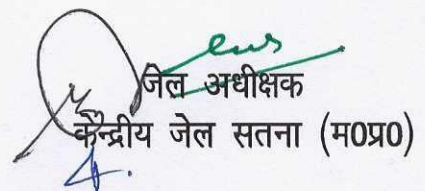 जेल अधीक्षक
केन्द्रीय जेल सतना (म0प्र0)